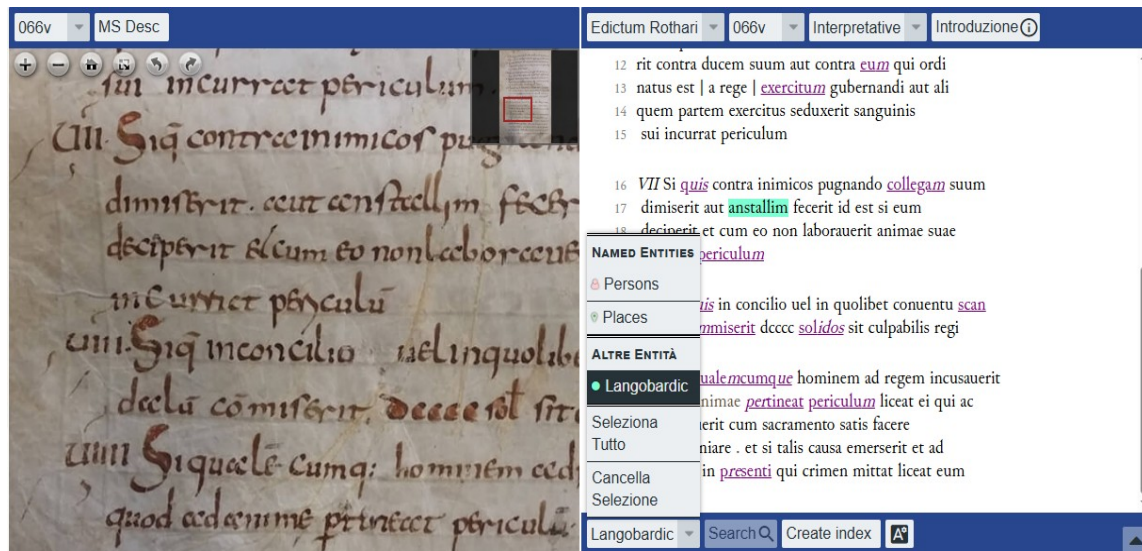 066v MS Desc
sui incurrat periculum
VII. Siq̄ contra inimicos pugn
dimiserit. aut anstallim fecer
deciperit et cum eo non laboraue
incurrat periculū
VIII. Siq̄ inconcilio uel inquolibe
dalū cōmiserit. dcccc sol sit c
VIIII Siqualē cumq: hominem ad
quod adanime ptineat pericul
Edictum Rothari 066v Interpretative Introduzione
12 rit contra ducem suum aut contra eum qui ordi
13 natus est | a rege | exercitum gubernandi aut ali
14 quem partem exercitus seduxerit sanguinis
15 sui incurrat periculum
16 VII Si quis contra inimicos pugnando collegam suum
17 dimiserit aut anstallim fecerit id est si eum
18 deciperit et cum eo non laborauerit animae suae
periculum
uis in concilio uel in quolibet conuentu scan
mmiserit dcccc solidos sit culpabilis regi
ualemcumque hominem ad regem incusauerit
nimae pertineat periculum liceat ei qui ac
uerit cum sacramento satis facere
niare . et si talis causa emerserit et ad
in presenti qui crimen mittat liceat eum
NAMED ENTITIES
Persons
Places
ALTRE ENTITÀ
Langobardic
Seleziona
Tutto
Cancella
Selezione
Langobardic Search Create index A